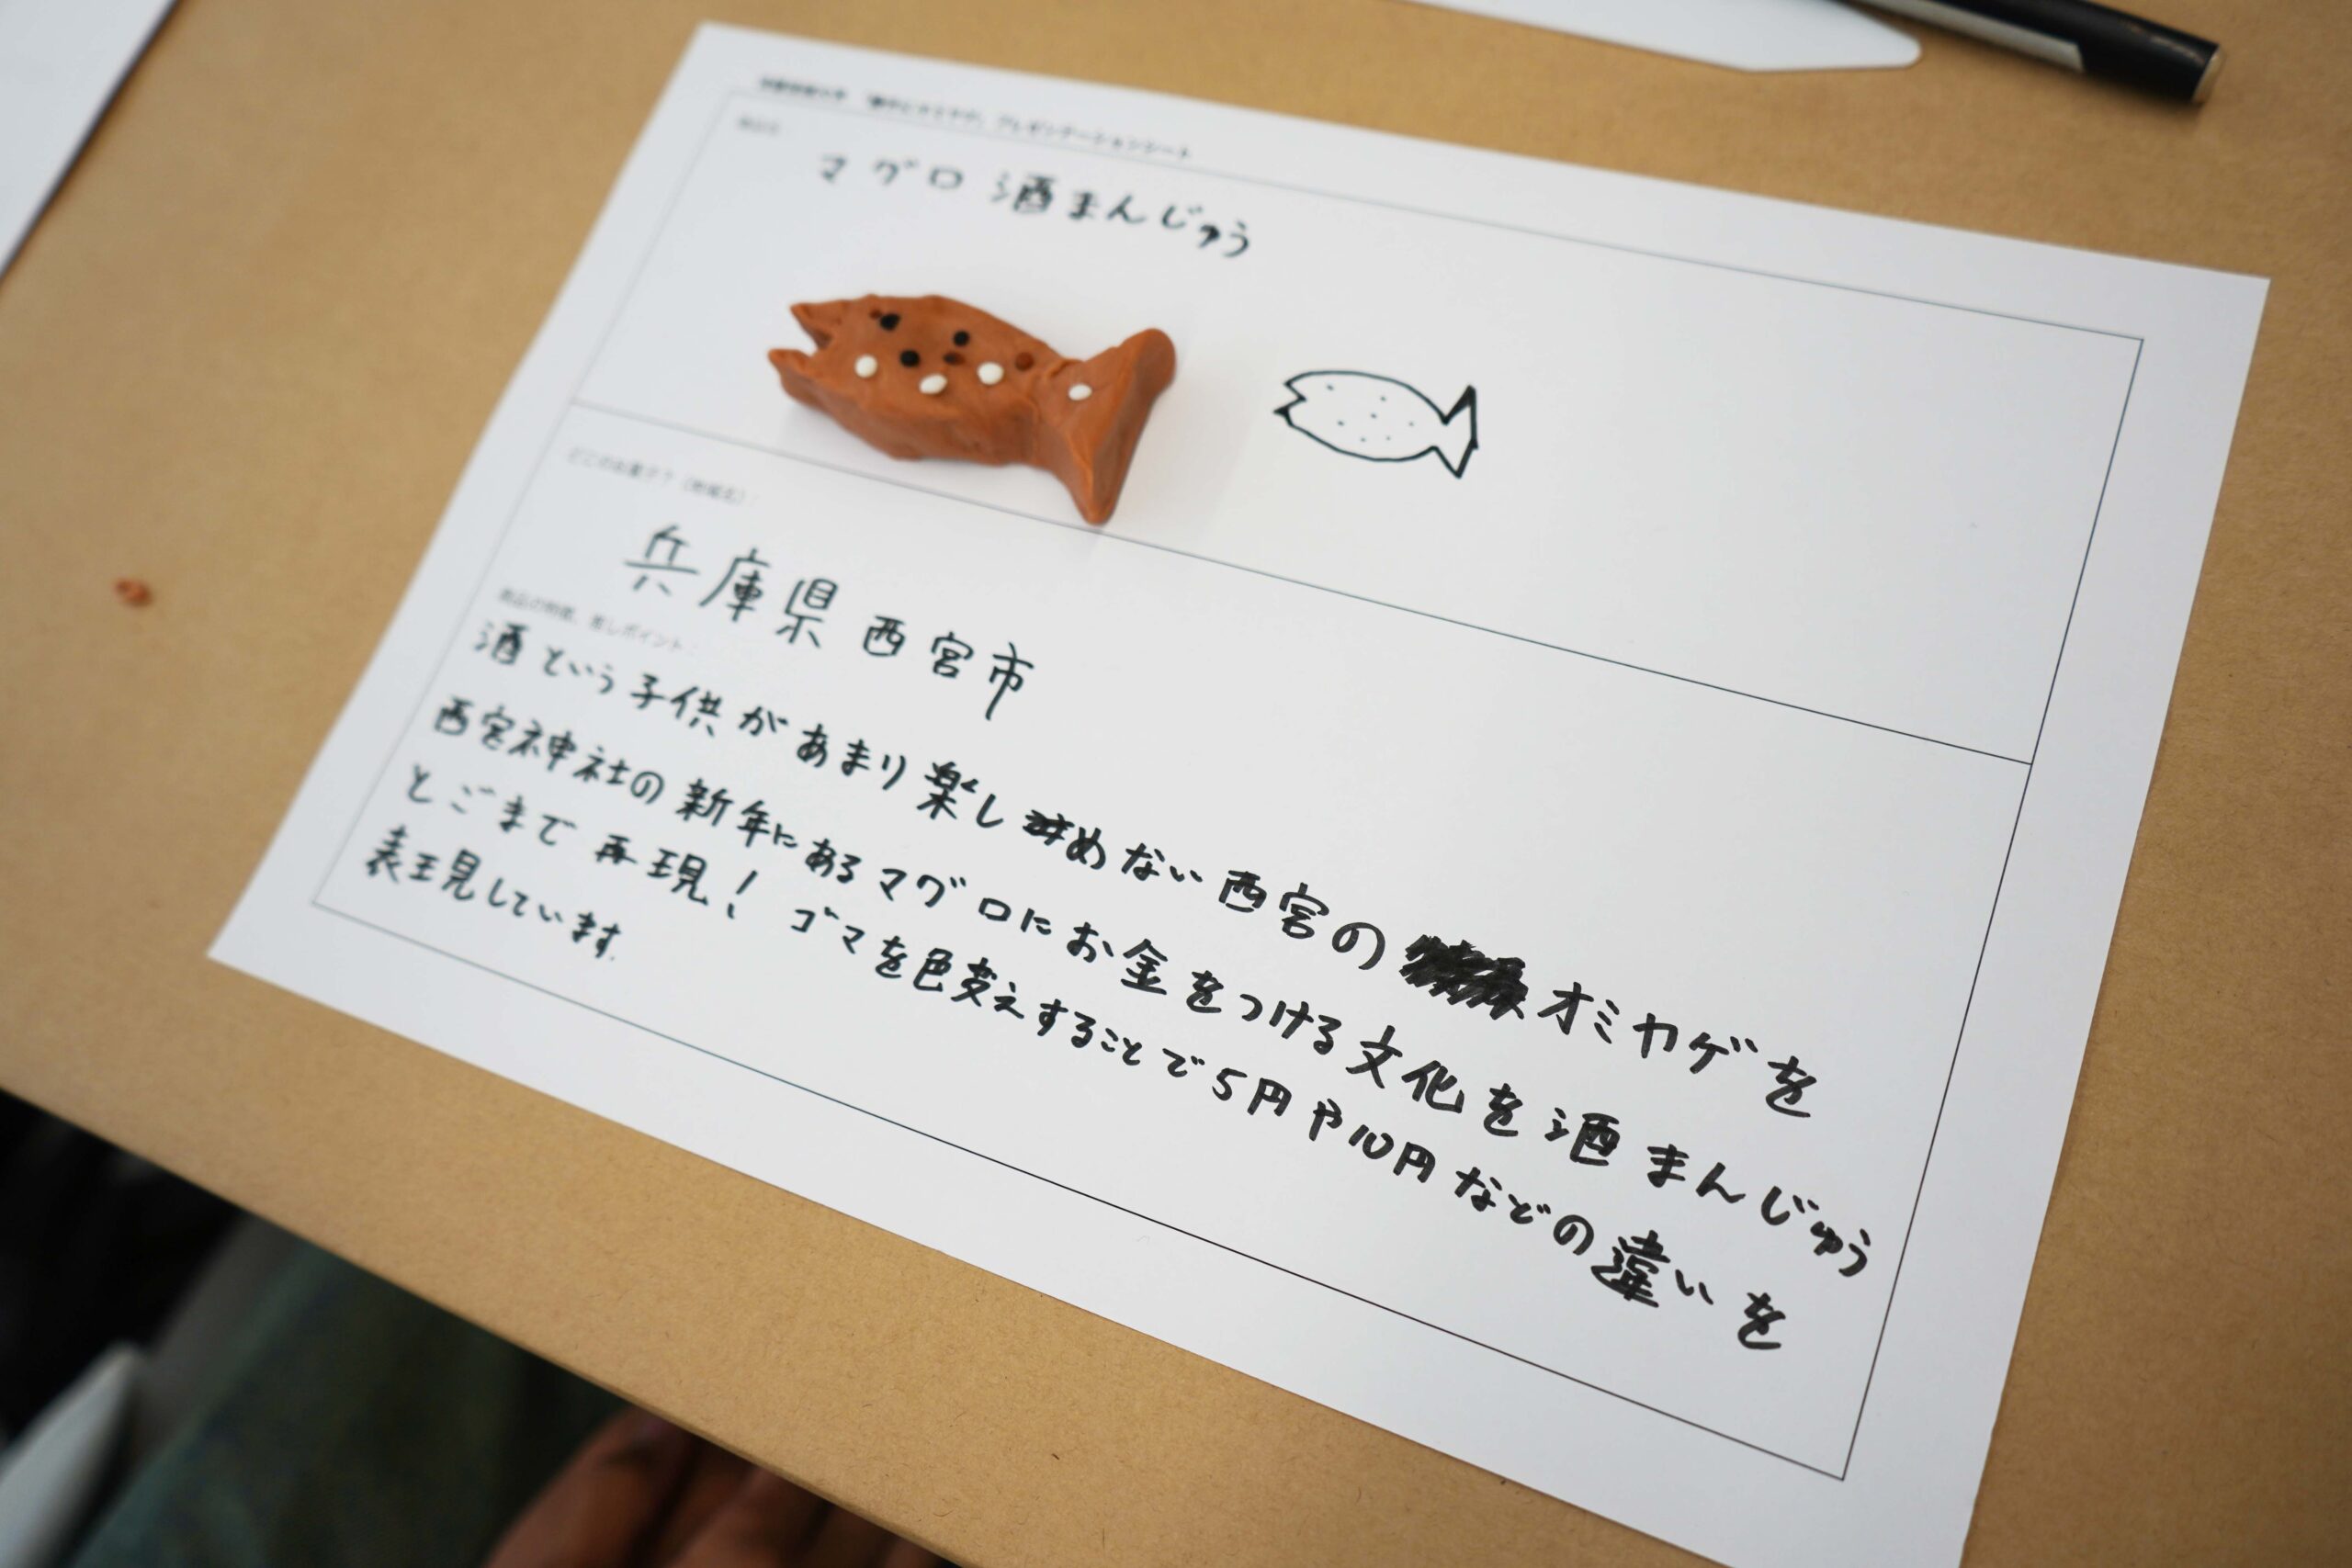 プレゼンテーションシート
商品名
マグロ酒まんじゅう
どこのお菓子？（地域名）：
兵庫県 西宮市
商品の特徴、推しポイント：
酒という子供があまり楽しめない西宮のオミヤゲを
西宮神社の新年にあるマグロにお金をつける文化を酒まんじゅう
とごまで再現！ ゴマを色変えすることで5円や10円などの違いを
表現しています.